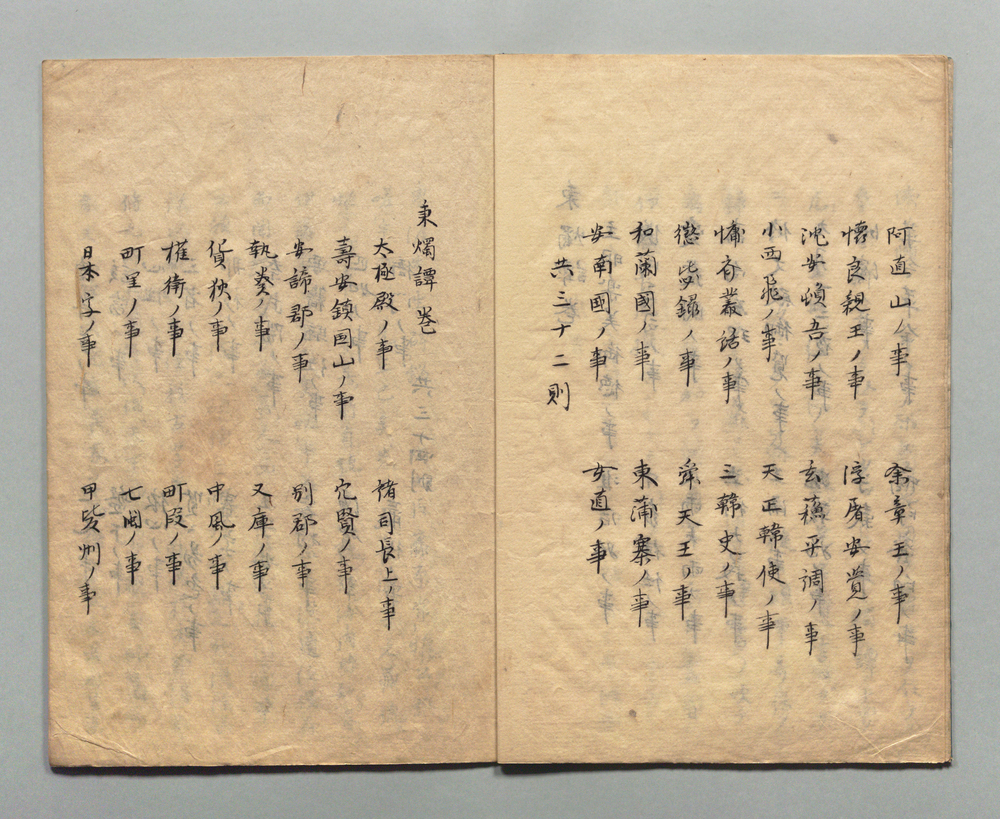 阿直山ノ事 余章王ノ事
懐良親王ノ事 浮屠安覚ノ事
沈安頓吾ノ事 玄蘓平調ノ事
小西飛ノ事 天正韓使ノ事
慵斎叢話ノ事 三韓史ノ事
懲毖録ノ事 舜天王ノ事
和蘭國ノ事 東蒲寨ノ事
安南國ノ事 女直ノ事
共三十二則
秉燭譚 巻
太極殿ノ事 諸司長上ノ事
壽安鎮国山ノ事 穴賢ノ事
安諦郡ノ事 別郡ノ事
文庫ノ事
貨狄ノ事 中風ノ事
権衡ノ事 町段ノ事
町里ノ事 七閩ノ事
日本字ノ事 甲斐州ノ事